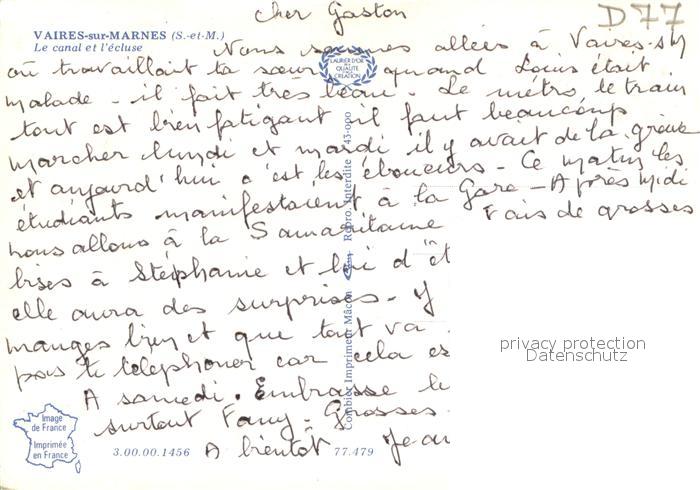 cher Gaston
D77
VAIRES-sur-MARNES (S.-et-M.)
Le canal et l'écluse
Nous sommes allées à Vaires-s/M
où travaillait ta sœur quand Louis était
malade - il fait tres beau. Le métro le train
tout est bien fatigant il faut beaucoup
marcher lundi et mardi il y avait de la grève
et aujourd'hui c'est les éboueurs - Ce matin les
étudiants manifestaient à la Gare - Après midi
nous allons à la Samaritaine Fais de grosses
bises à Stéphanie et lui d
elle aura des surprises -
manges bien et que tout va
pas te telephoner car cela es
A samedi. Embrasse le
surtout Fany - Grosses
A bientôt
LAURIER D'OR
DE LA
QUALITÉ
CREATION
Combier Imprimeur Mâcon Repro. Interdite 43-090
Image
de France
Imprimée
en France
3.00.00.1456 77.479
privacy protection
Datenschutz